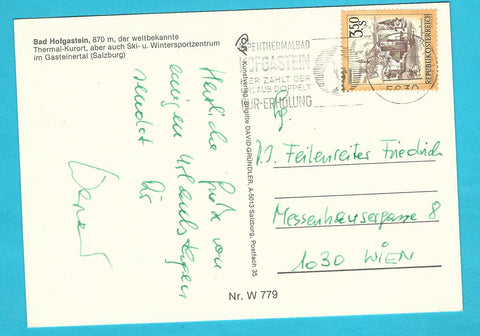 Bad Hofgastein, 870 m, der weltbekannte
Thermal-Kurort, aber auch Ski- u. Wintersportzentrum
im Gasteinertal (Salzburg)
Herzliche Grüße von
einigen Urlaubstagen
sendet Dir
Cosy-Kunstverlag Brigitte DAVID-GRÜNDLER, A-5013 Salzburg, Postfach 35
Nr. W 779
ENTHERMALBAD
OFGASTEIN
ER ZAHLT DER
LAUB DOPPELT
UR-ERHOLUNG
5630
3.50
S
REPUBLIK ÖSTERREICH
Hg.
Feilenreiter Friedrich
Messenhausergasse 8
1030 WIEN